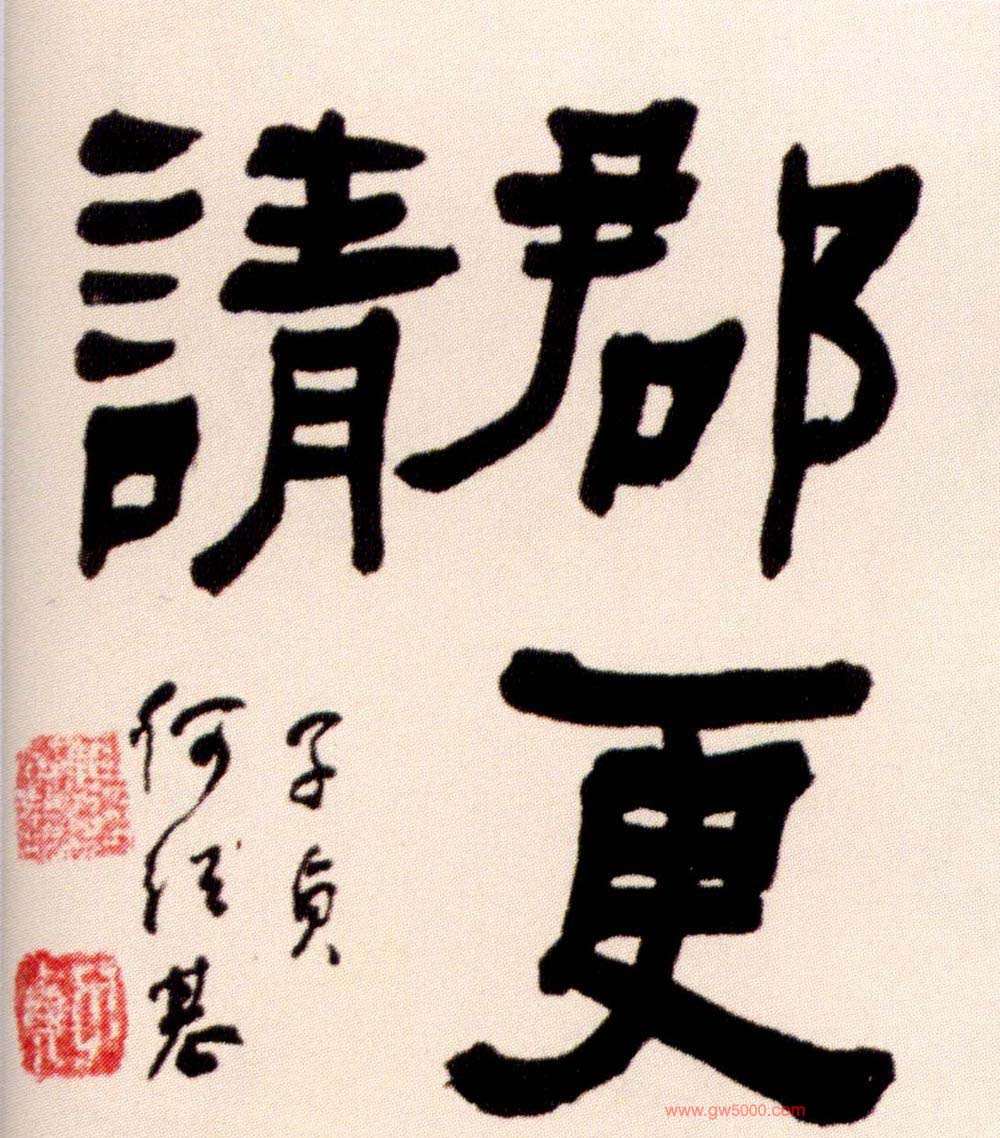 郡更
請
子貞
何紹基
www.gw5000.com